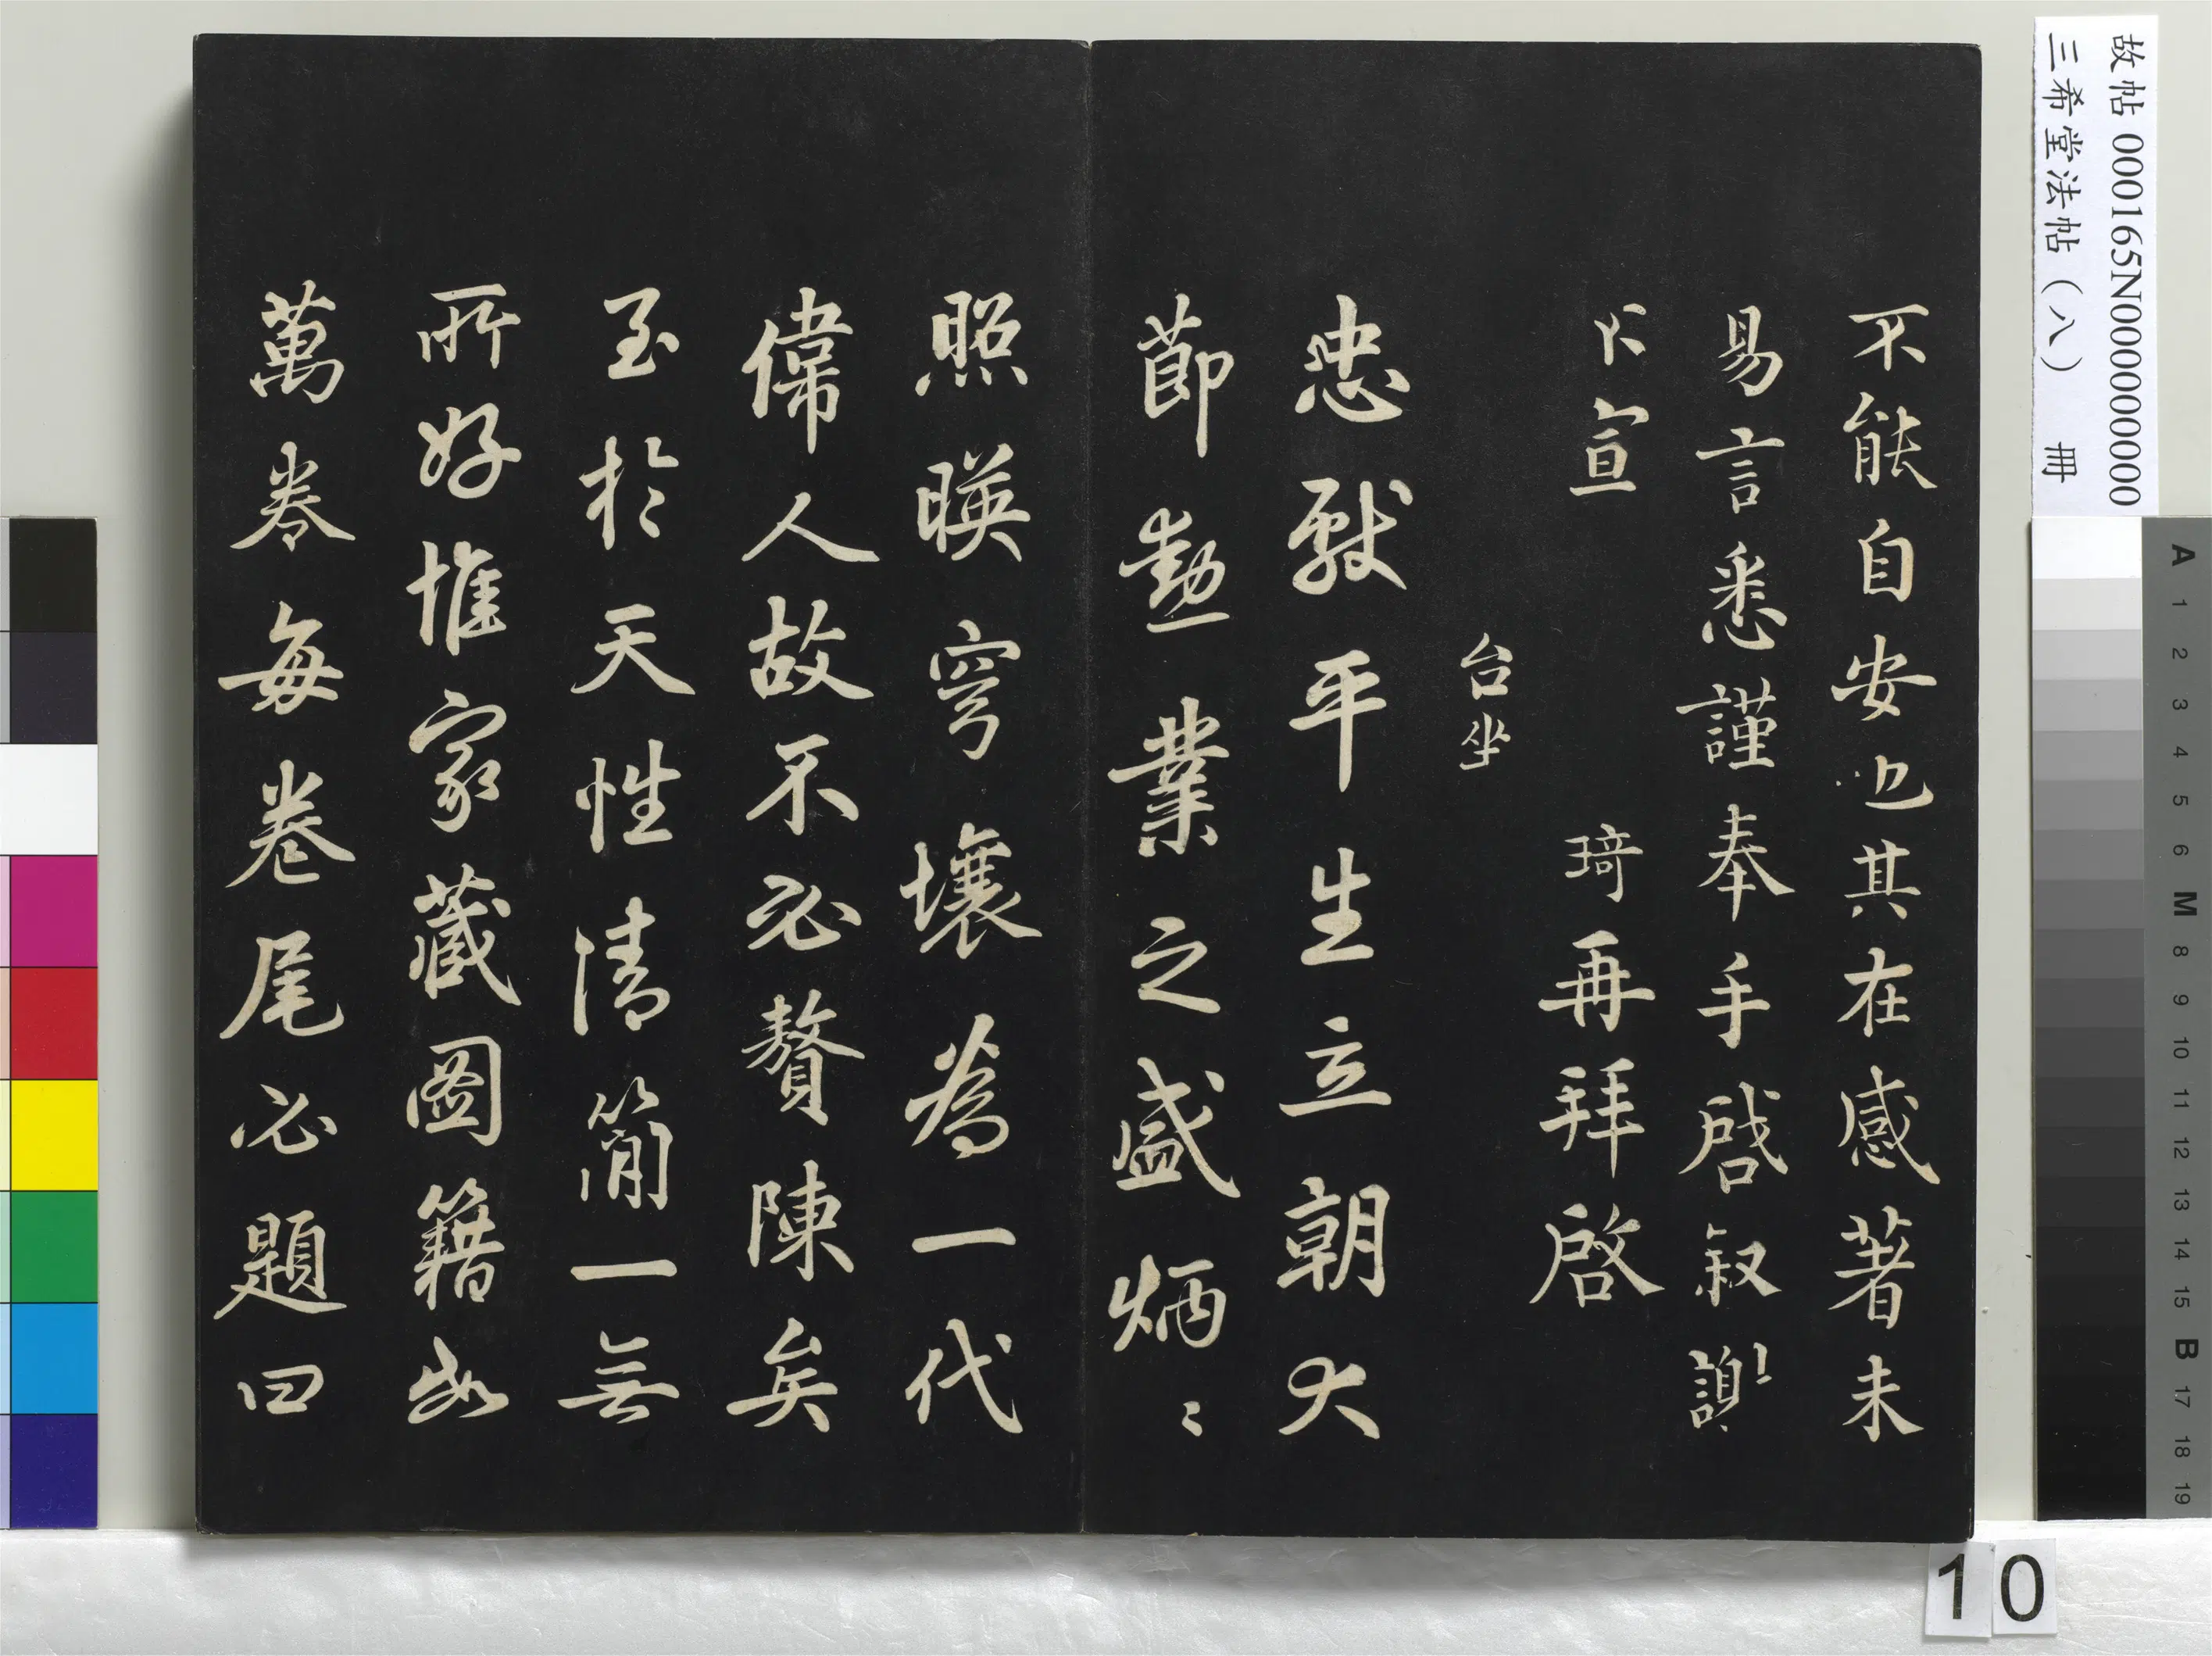 不能自安也其在感著未
易言悉謹奉手啓叙謝
不宣
琦再拜啓
台坐
忠獻平生立朝大
節勳業之盛炳〻
照暎穹壤為一代
偉人故不必贅陳矣
至於天性清簡一無
所好惟家藏圖籍如
萬卷每卷尾必題曰
故帖 000165N000000000
三希堂法帖(八) 冊
10
A 1 2 3 4 5 6 M 8 9 10 11 12 13 14 15 B 17 18 19